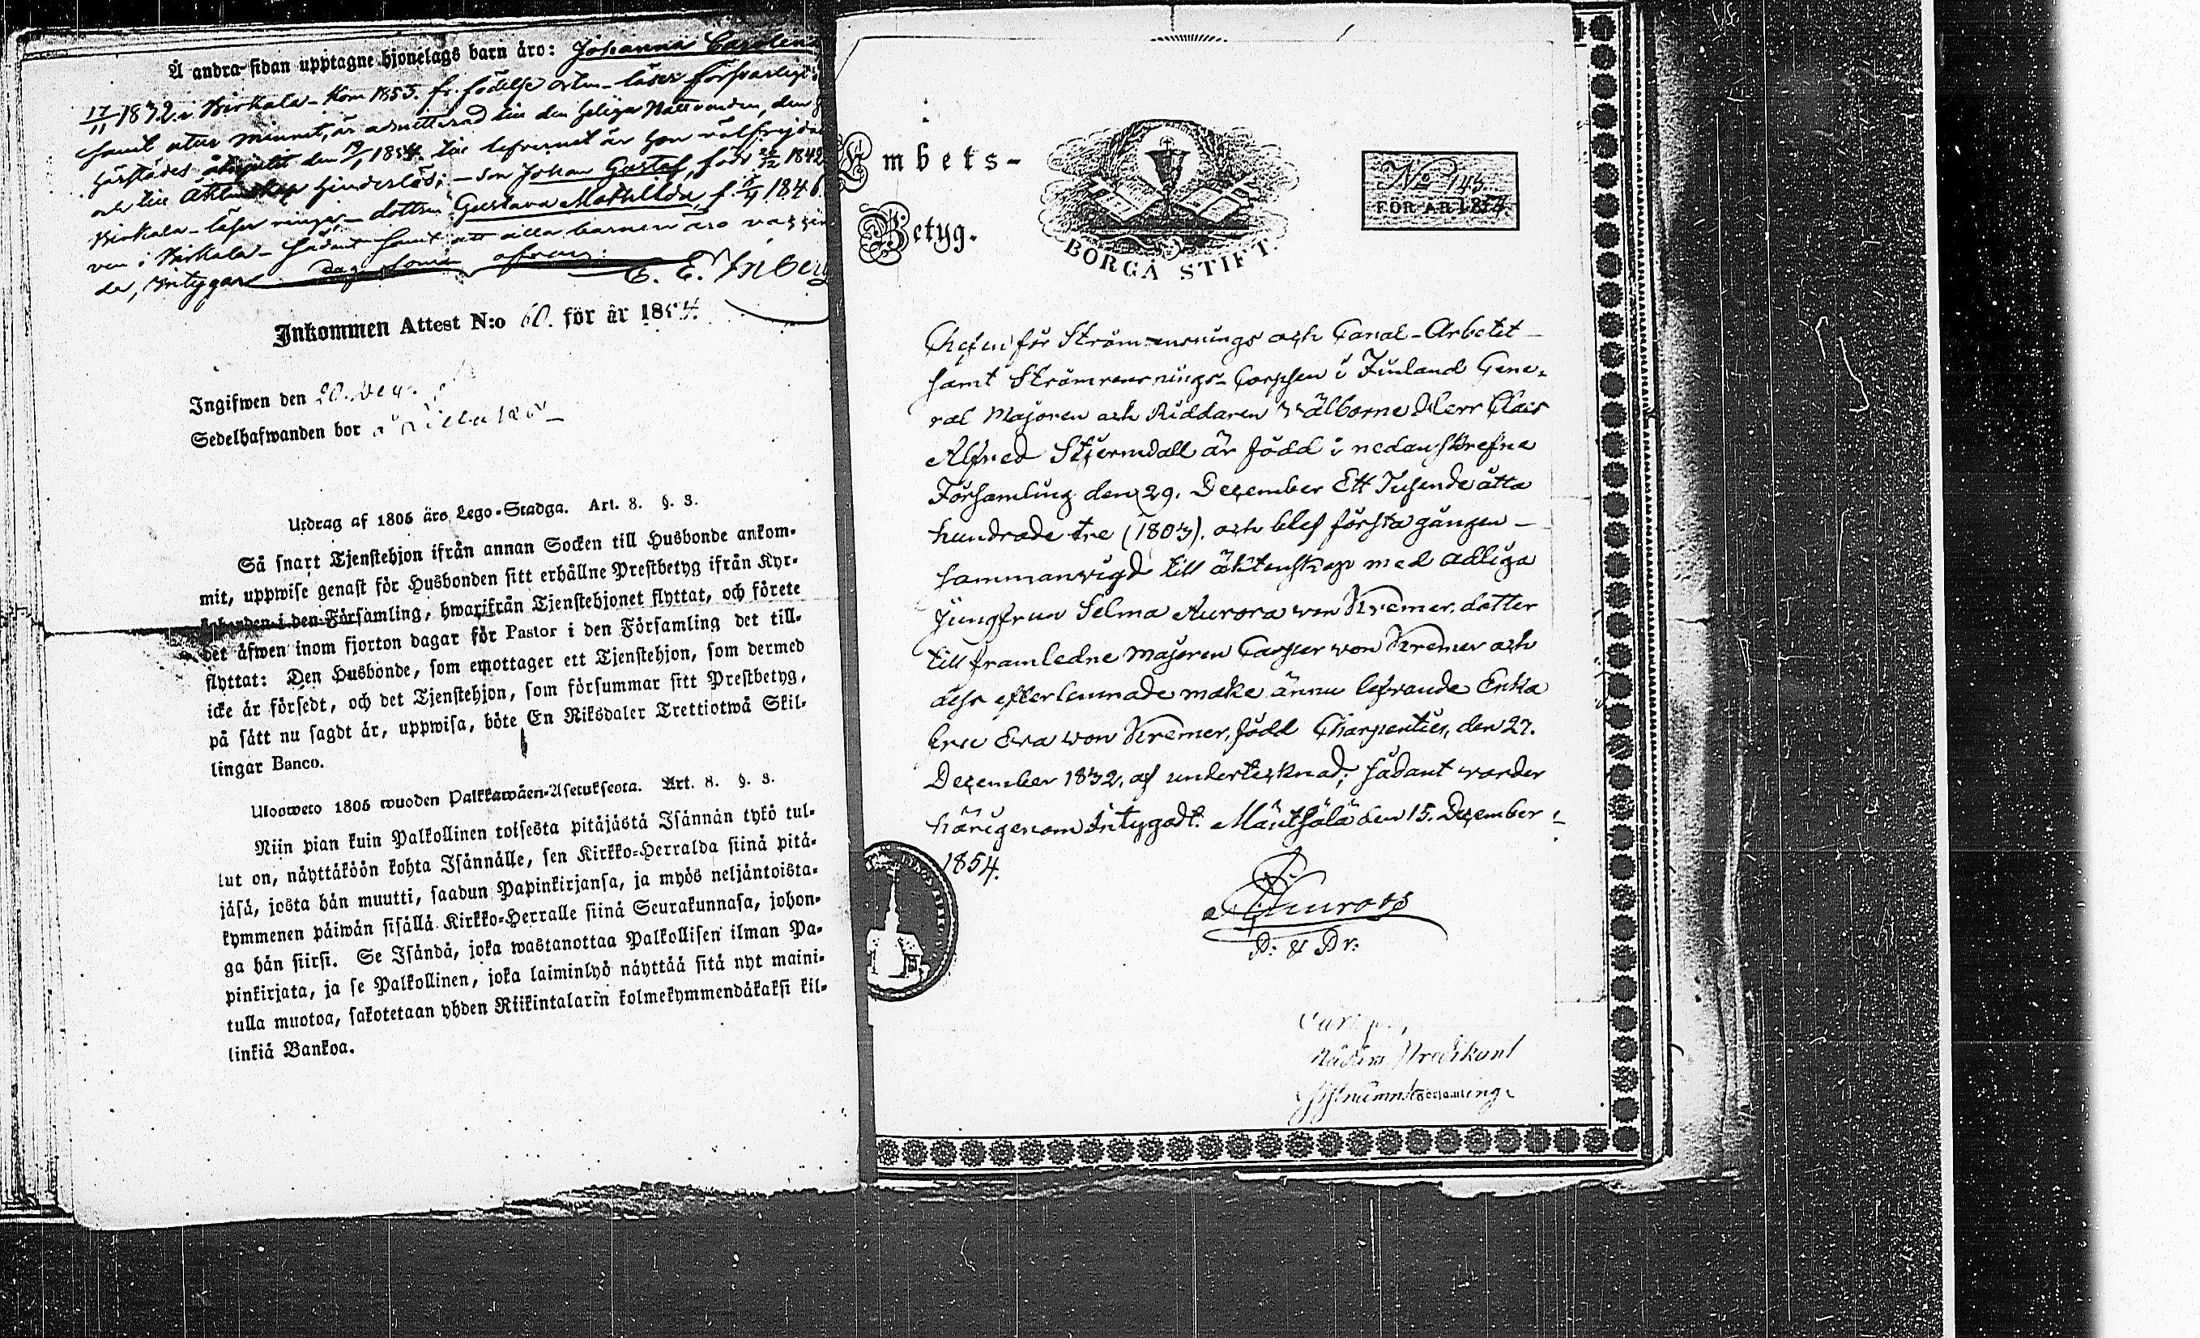 Å andra sidan upptagne hjonelags barn äro: Johanna Carolina
17/11 1832 i Birkala - kom 1853 fr. födelse orten - läser försvarligt
samt utur minnet, är admitterad till den heliga Nattvarden, den
härstädes den 19/1 1854 till lefvernet är hon välfrejdad
och till Äktenskap hinderlös; - son Johan Gustaf, född 22/12 1842
Birkala - läser ringa, - dottren Gustava Mathilda f. 1846
ven i Birkala - Sådant samt att alla barnen äro vaccine
de, Intygar dag som ofvan:
C. E. Inberg
Inkommen Attest N:o 60. för år 1854.
Ingifwen den 20.
Sedelhafwanden bor å
Utdrag af 1805 års Lego-Stadga. Art. 8. §. 3.
Så snart Tjenstehjon ifrån annan Socken till Husbonde ankom-
mit, uppwise genast för Husbonden sitt erhållne Prestbetyg ifrån Kyr-
koherden i den Församling, hwarifrån Tjenstehjonet flyttat, och förete
det äfwen inom fjorton dagar för Pastor i den Församling det till-
flyttat: Den Husbonde, som emottager ett Tjenstehjon, som dermed
icke är försedt, och det Tjenstehjon, som försummar sitt Prestbetyg,
på sätt nu sagdt är, uppwisa, böte En Riksdaler Trettiotwå Skil-
lingar Banco.
Ulosweto 1805 wuoden Palkkawäen-Asetuksesta. Art. 8. §. 3.
Niin pian kuin Palkollinen toisesta pitäjästä Isännän tykö tul-
lut on, näyttäköön kohta Isännälle, sen Kirkko-Herralda siinä pitä-
jäsä, josta hän muutti, saadun Papinkirjansa, ja myös neljäntoista-
kymmenen päiwän sisällä Kirkko-Herralle siinä Seurakunnasa, johon-
ga hän siirsi. Se Isändä, joka wastanottaa Palkollisen ilman Pa-
pinkirjata, ja se Palkollinen, joka laiminlyö näyttää sitä nyt maini-
tulla muotoa, sakotetaan yhden Riikintalarin kolmekymmendäkaksi kil-
linkiä Bankoa.
Embets-
Betyg.
BORGÅ STIFT.
No 143
FÖR ÅR 1854.
Chefen för Strömrensnings och Canal-Arbetet
samt Strömrensnings-Corpsen i Finland Gene-
ral Majoren och Riddaren Välborne Herr Claes
Alfred Stjernvall är född i nedanskrefne
Församling den 29. December Ett Tusende åtta
hundrade tre (1803). och blef första gången
sammanvigd till äktenskap med adliga
Jungfrun Selma Aurora von Kremer, dotter
till framledne Majoren Casper von Kremer och
dess efterlemnade maka ännu lefvande Enke
Fru Eva von Kremer, född Charpentier, den 27.
December 1832, af undertecknad; sådant varder
härigenom Intygadt. Mäntsälä den 15. December
1854.
D. & Dr.